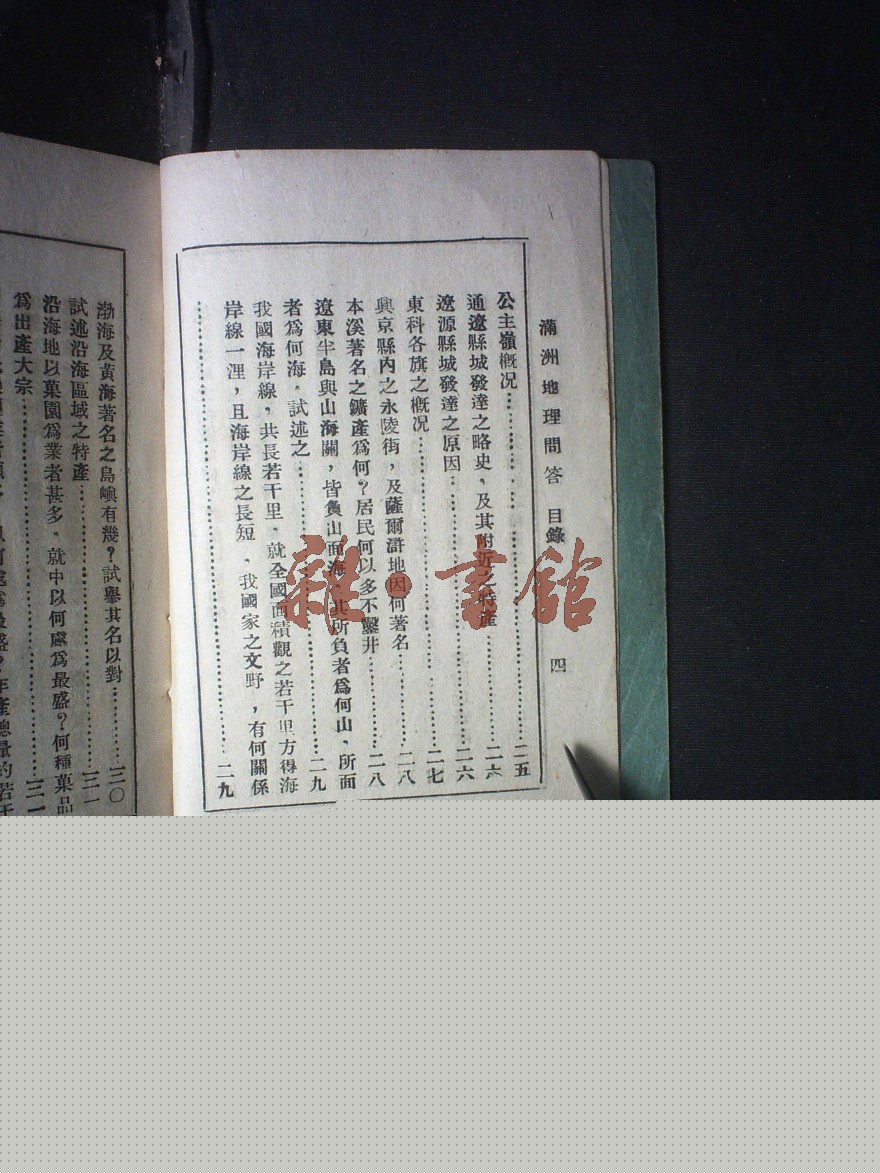 滿洲地理問答 目錄 四
公主嶺概况……二五
通遼縣城發達之略史、及其附近之特產……二六
遼源縣城發達之原因……二六
東科各旗之概况……二七
興京縣內之永陵街，及薩爾滸地因何著名……二八
本溪著名之鑛產爲何？居民何以多不鑿井……二八
遼東半島與山海關，皆負山面海、其所負者爲何山、所面
者爲何海。試述之……二九
我國海岸線，共長若干里．就全國面積觀之若干里方得海
岸線一浬，且海岸線之長短、我國家之文野，有何關係
……二九
渤海及黃海著名之島嶼有幾？試擧其名以對……三〇
試述沿海區域之特產……三一
沿海地以菓園爲業者甚多．就中以何處爲最盛？何種菓品
爲出產大宗……三一
雜·書館